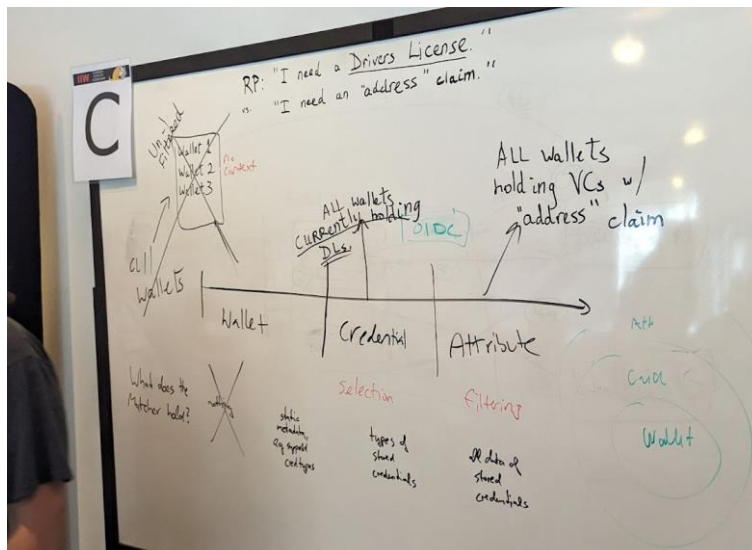 IIW
C
RP: "I need a Drivers License."
vs. "I need an "address" claim."
Un-
filtered
Wallet 1
Wallet 2
Wallet 3
no
context
all
wallets
ALL wallets
CURRENTLY holding
DLs.
OIDC
ALL wallets
holding VCs w/
"address" claim
Wallet
Credential
Attribute
What does the
Matcher hold?
nothing
static
metadata,
eg support
cred types
selection
types of
stored
credentials
filtering
all data of
stored
credentials
Att
Cred
Wallet